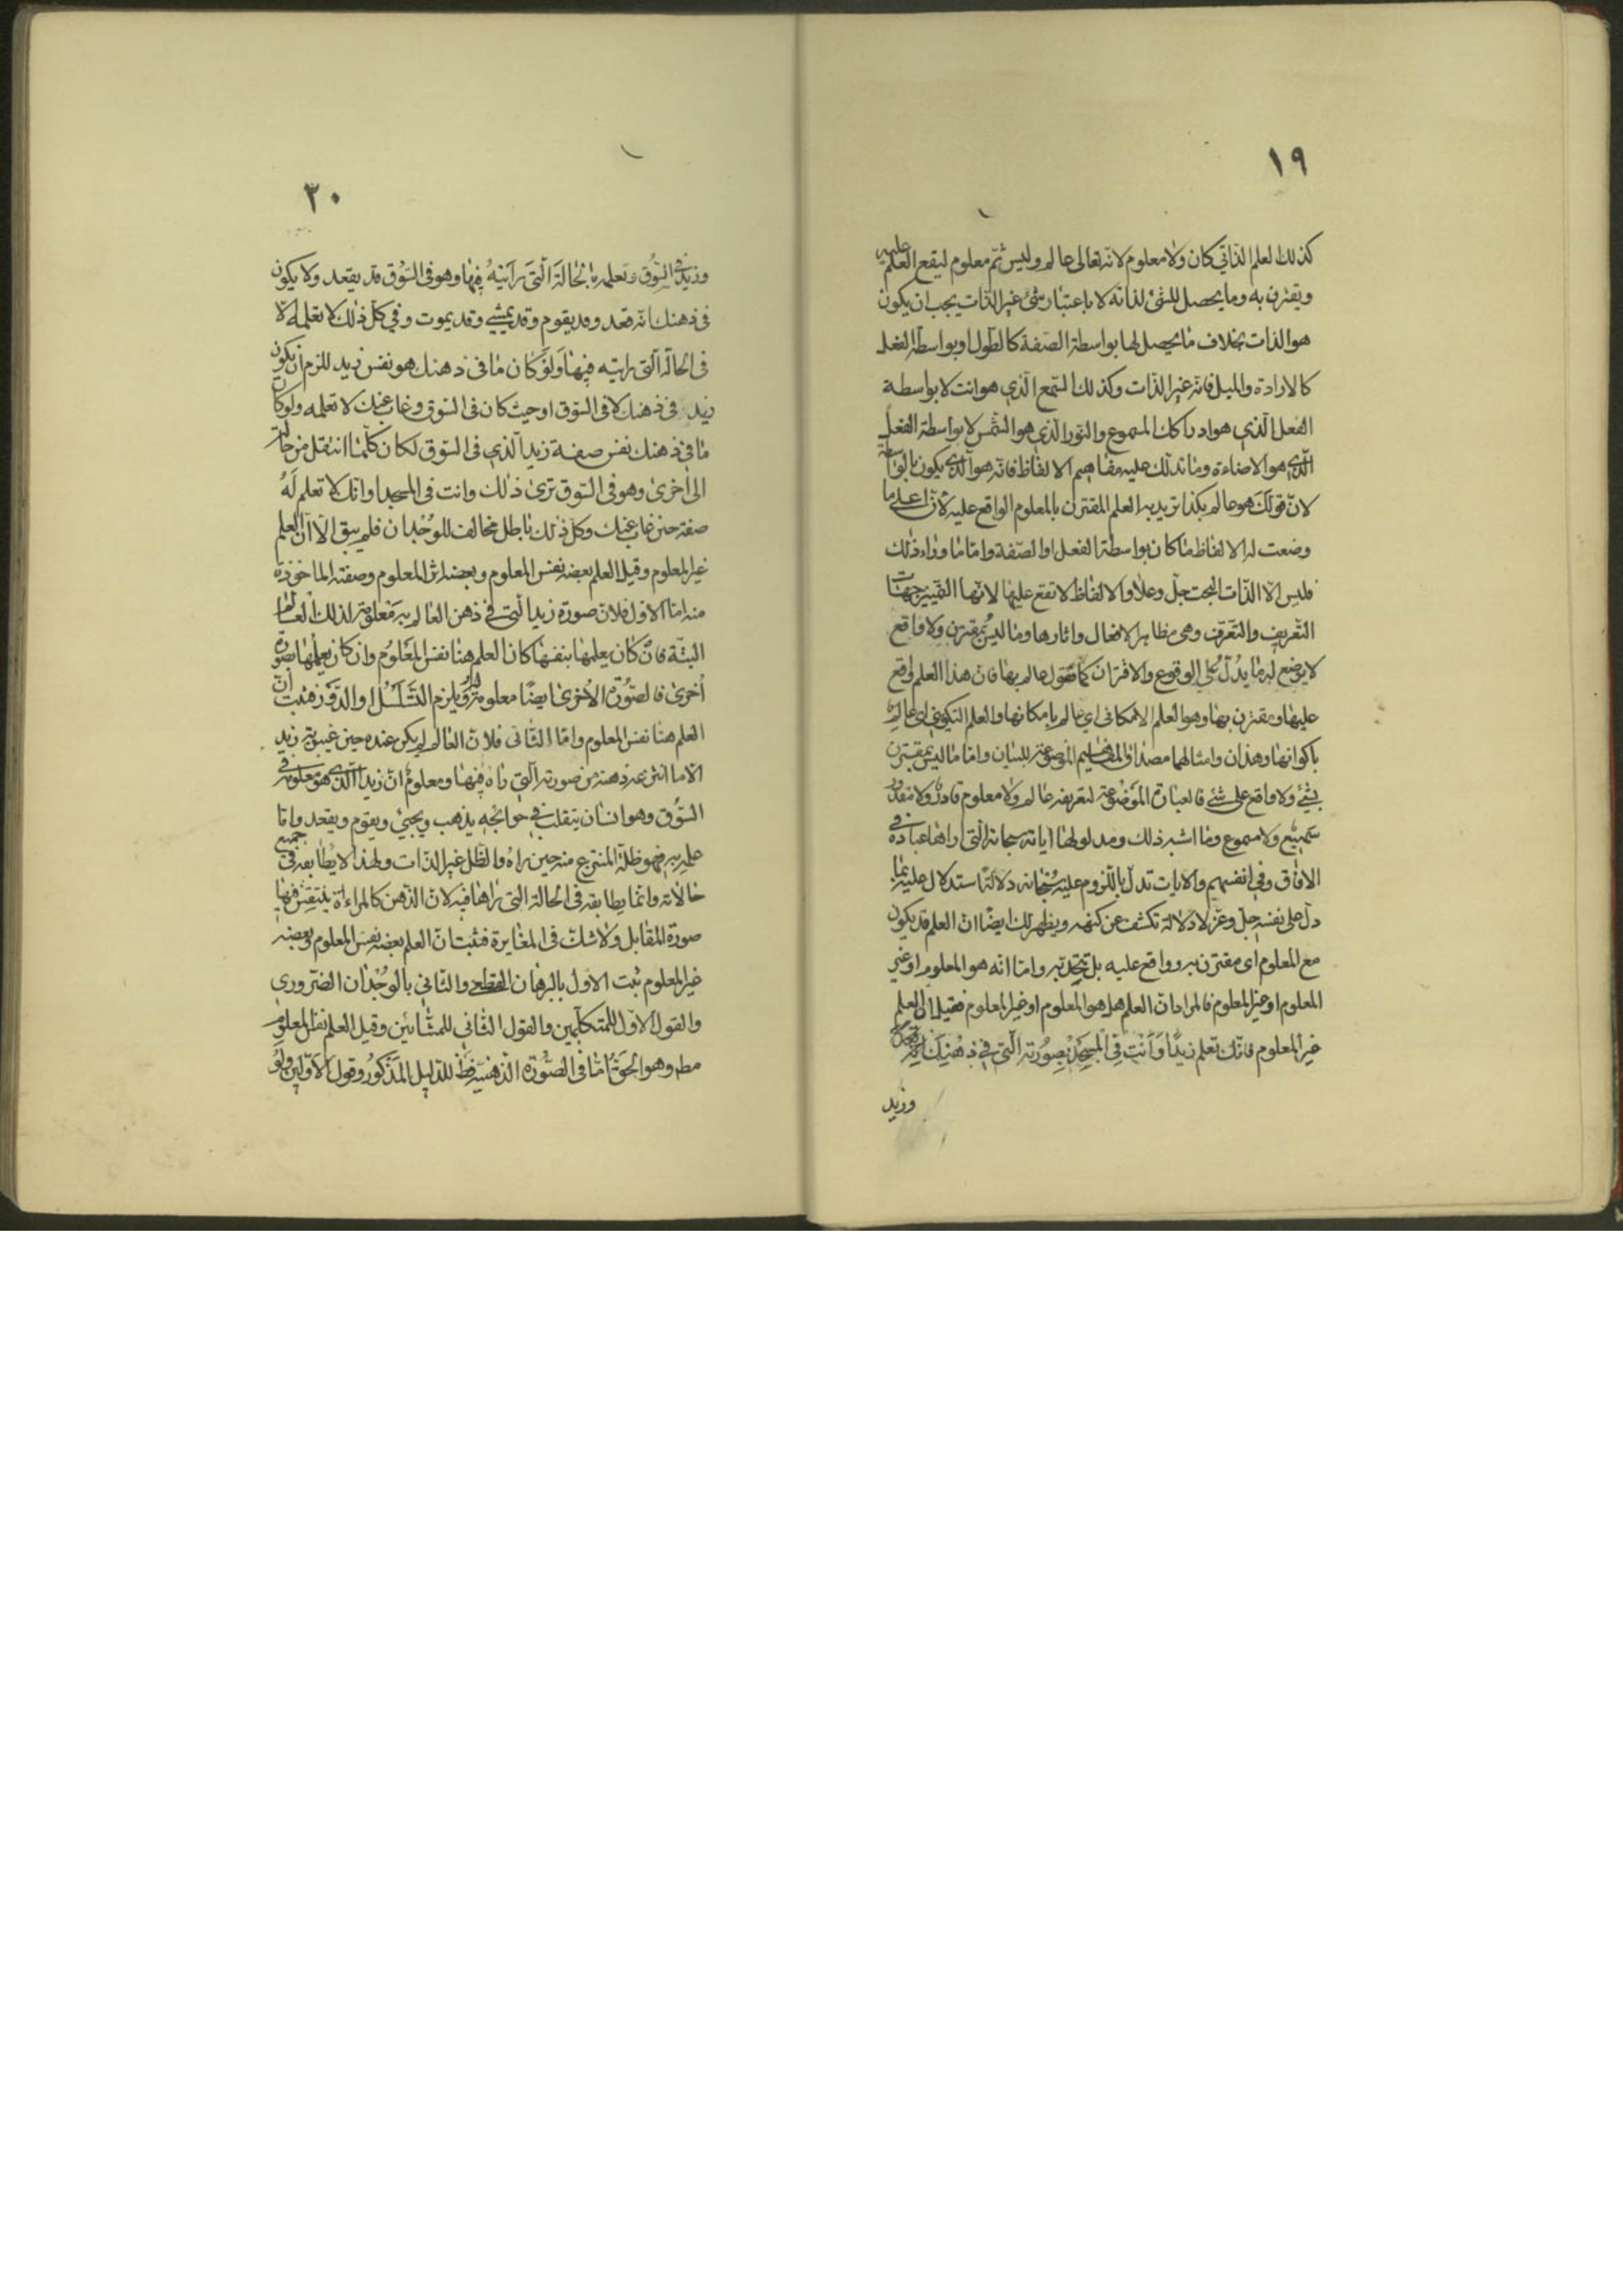 ١٩
كذلك لعلم الذاتي كان ولا معلوم لانه تعالى عالم وليس ثم معلوم ليقع العلم عليه
ويقترن به وما يحصل للشئ لذاته لا باعتبار شئ غير الذات يجب ان يكون
هو الذات بخلاف ما يحصل لها بواسطة الصفة كالطول او بواسطة الفعل
كالارادة والميل فانه غير الذات وكذلك السمع الذي هو انت لا بواسطة
الفعل الذي هو ادراكك المسموع والنور الذي هو الشمس لا بواسطة الفعل
الذي هو الاضاءة وما تدلك عليه مفاهيم الالفاظ فانه هو الذي يكون بالواسطة
لان قولك هو عالم بكذا تريد به العلم المقترن بالمعلوم الواقع عليه لان اعلى ما
وضعت له الالفاظ ما كان بواسطة الفعل او الصفة واما ما وراء ذلك
فليس الا الذات البحت جل وعلا والالفاظ لا تقع عليها لانها التمييز جهات
التعريف والتعرف وهي مظاهر الافعال واثارها وما ليس بمقترن ولا واقع
لا يوضع له ما يدل على الوقوع والاقتران كما تقول عالم بها فان هذا العلم واقع
عليها ومقترن بها وهو العلم الامكاني اي عالم بامكانها والعلم التكويني اي عالم
باكوانها وهذان وامثالهما مصداق المفاهيم الموضوعة للبيان واما ما ليس بمقترن
بشئ ولا واقع على شئ فالعبارة الموضوعة لتعريفه عالم ولا معلوم قادر ولا مقدور
سميع ولا مسموع وما اشبه ذلك ومدلولها اياته سبحانه التي اراها عباده في
الافاق وفي انفسهم والايات تدل باللزوم عليه سبحانه دلالة استدلال عليه بما
دل على نفسه جل وعز لا دلالة تكشف عن كنهه ويظهر لك ايضا ان العلم قد يكون
مع المعلوم اى مقترن به وواقع عليه بل يتحد به واما انه هو المعلوم او غير
المعلوم او غير المعلوم فالمراد ان العلم هل هو المعلوم او غير المعلوم فقيل ان العلم
غير المعلوم فانك تعلم زيدا وانت في المسجد بصورته التي في ذهنك
وزيد
٢٠
وزيد في السوق وتعلمه بالحالة التي رايته فيها وهو في السوق قد يقعد ولا يكون
في ذهنك انه قعد وقد يقوم وقد يمشي وقد يموت وفي كل ذلك لا تعلمه الا
في الحالة التي رايته فيها ولو كان ما في ذهنك هو نفس زيد للزم ان يكون
زيد في ذهنك لا في السوق او حيث كان في السوق وغاب عنك لا تعلمه ولو كان
ما في ذهنك نفس صفة زيد الذي في السوق لكان كلما انتقل من حالة
الى اخرى وهو في السوق ترى ذلك وانت في المسجد او انك لا تعلم له
صفة حين غاب عنك وكل ذلك باطل مخالف للوجدان فلم يبق الا ان العلم
غير المعلوم وقيل العلم بعضه نفس المعلوم وبعضه اثر المعلوم وصفته الماخوذة
منه اما الاول فلان صورة زيد التي في ذهن العالم به معلومة لذلك العالم
البتة فان كان يعلمها بنفسها كان العلم هنا نفس المعلوم وان كان يعلمها بصورة
اخرى فالصورة الاخرى ايضا معلومة له ويلزم التسلسل او الدور فثبت ان
العلم هنا نفس المعلوم واما الثاني فلان العالم لم يكن عنده حين غيبوبة زيد
الا ما انتزعه ذهنه من صورته التي راه فيها ومعلوم ان زيدا الذي هو معلومه في
السوق وهو انسان يتقلب في حوائجه يذهب ويجيئ ويقوم ويقعد واما
علمه به فهو ظله المنتزع منه حين راه والظل غير الذات ولهذا لا يطابقه في جميع
حالاته وانما يطابقه في الحالة التي راها فيه لان الذهن كالمراءة ينتقش فيها
صورة المقابل ولا شك في المغايرة فثبت ان العلم بعضه نفس المعلوم وبعضه
غير المعلوم ثبت الاول بالبرهان القطعي والثاني بالوجدان الضروري
والقول الاول للمتكلمين والقول الثاني للمشائين وقيل العلم نفس المعلوم
مط وهو الحق اما في الصورة الذهنية فظ للدليل المذكور وقول الاولين ولو